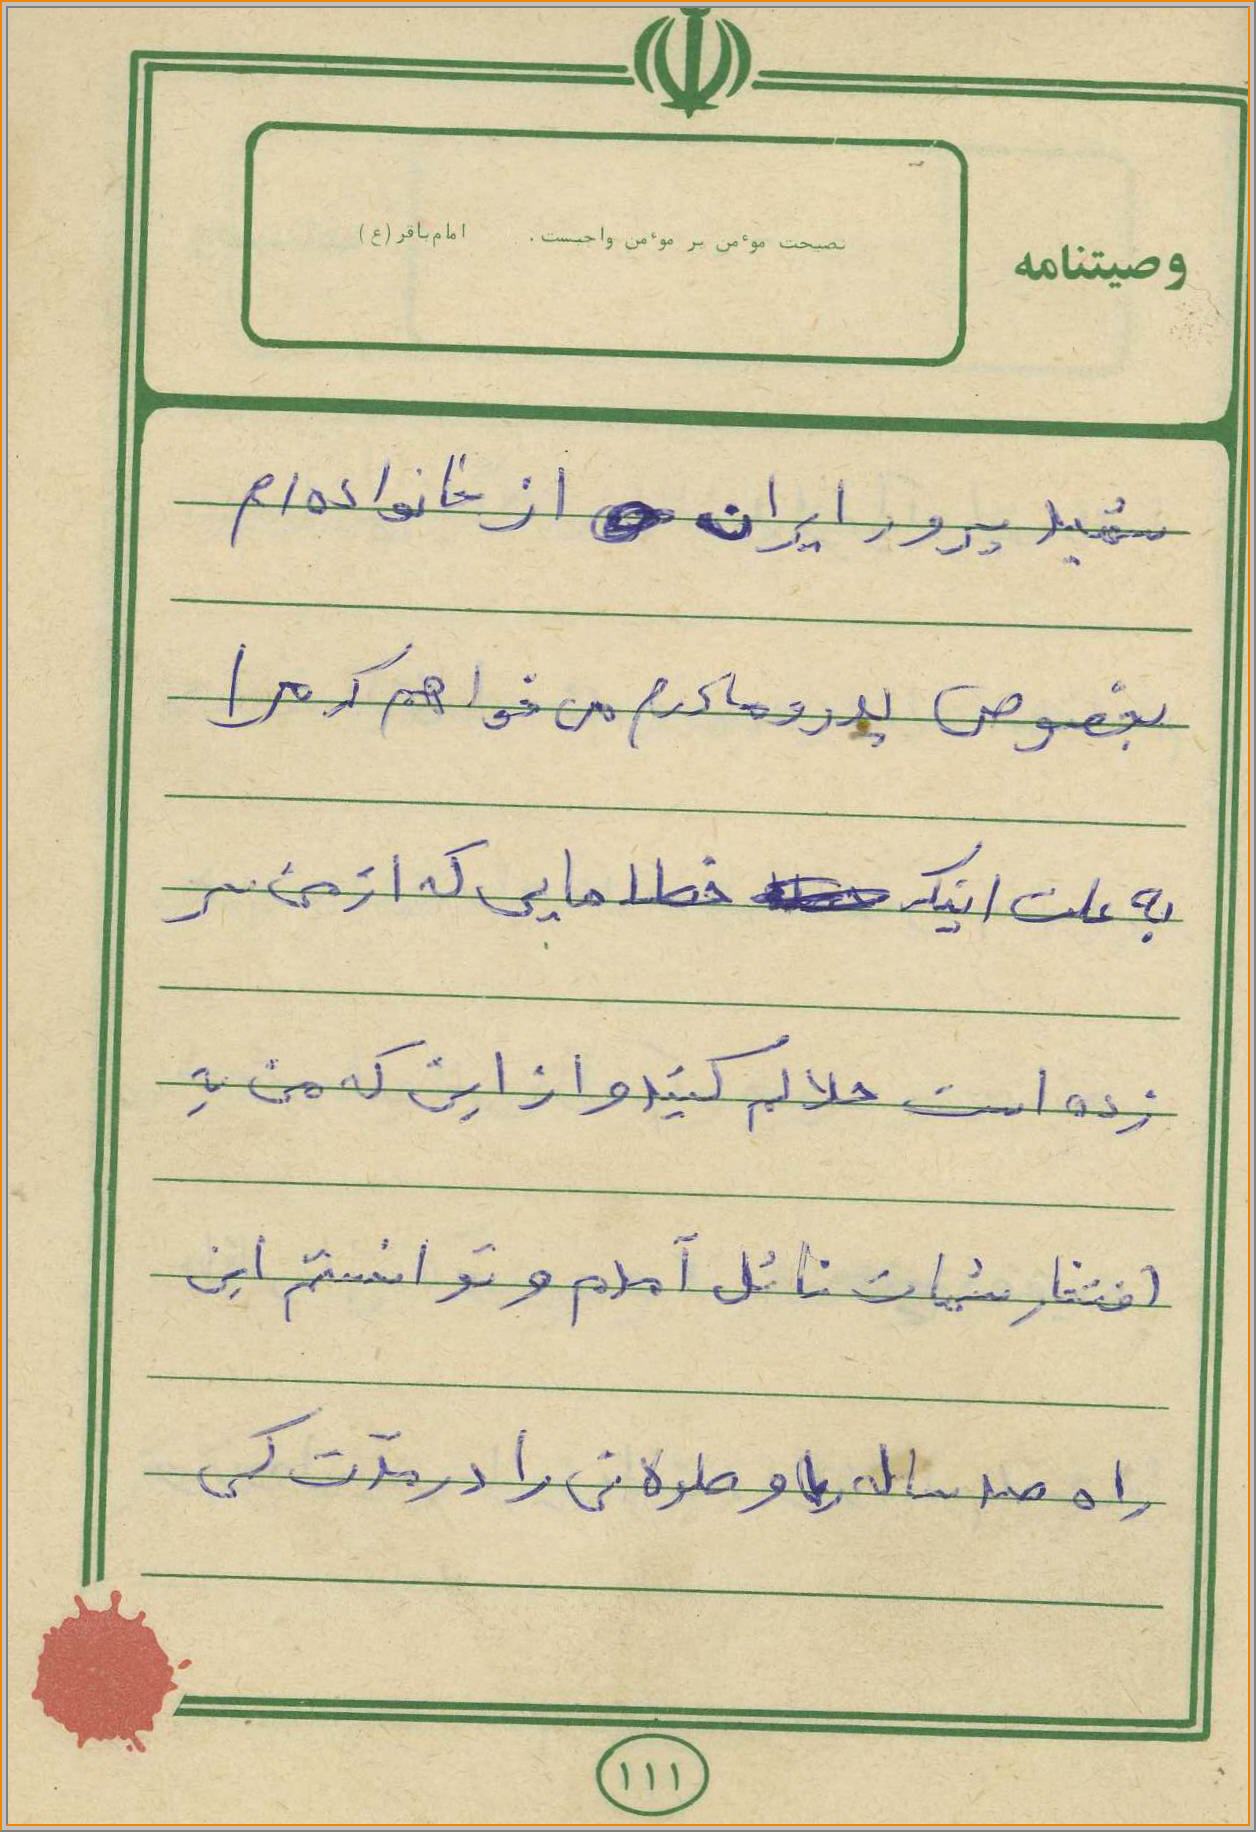 وصیتنامه
نصیحت موءمن بر موءمن واجبست. امام باقر (ع)
شهید پرور ایران از خانواده ام
بخصوص پدر و مادرم می خواهم که مرا
به علت اینکه خطاهایی که از من سر
زده است حلالم کنید و از این که من به
افتخار شهادت نائل آمدم و توانستم این
راه صد ساله و طولانی را در مدّت کمی
۱۱۱